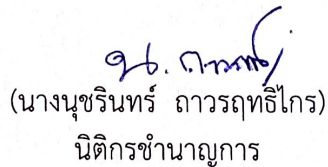 (นางนุชรินทร์ ถาวรฤทธิไกร)
นิติกรชำนาญการ